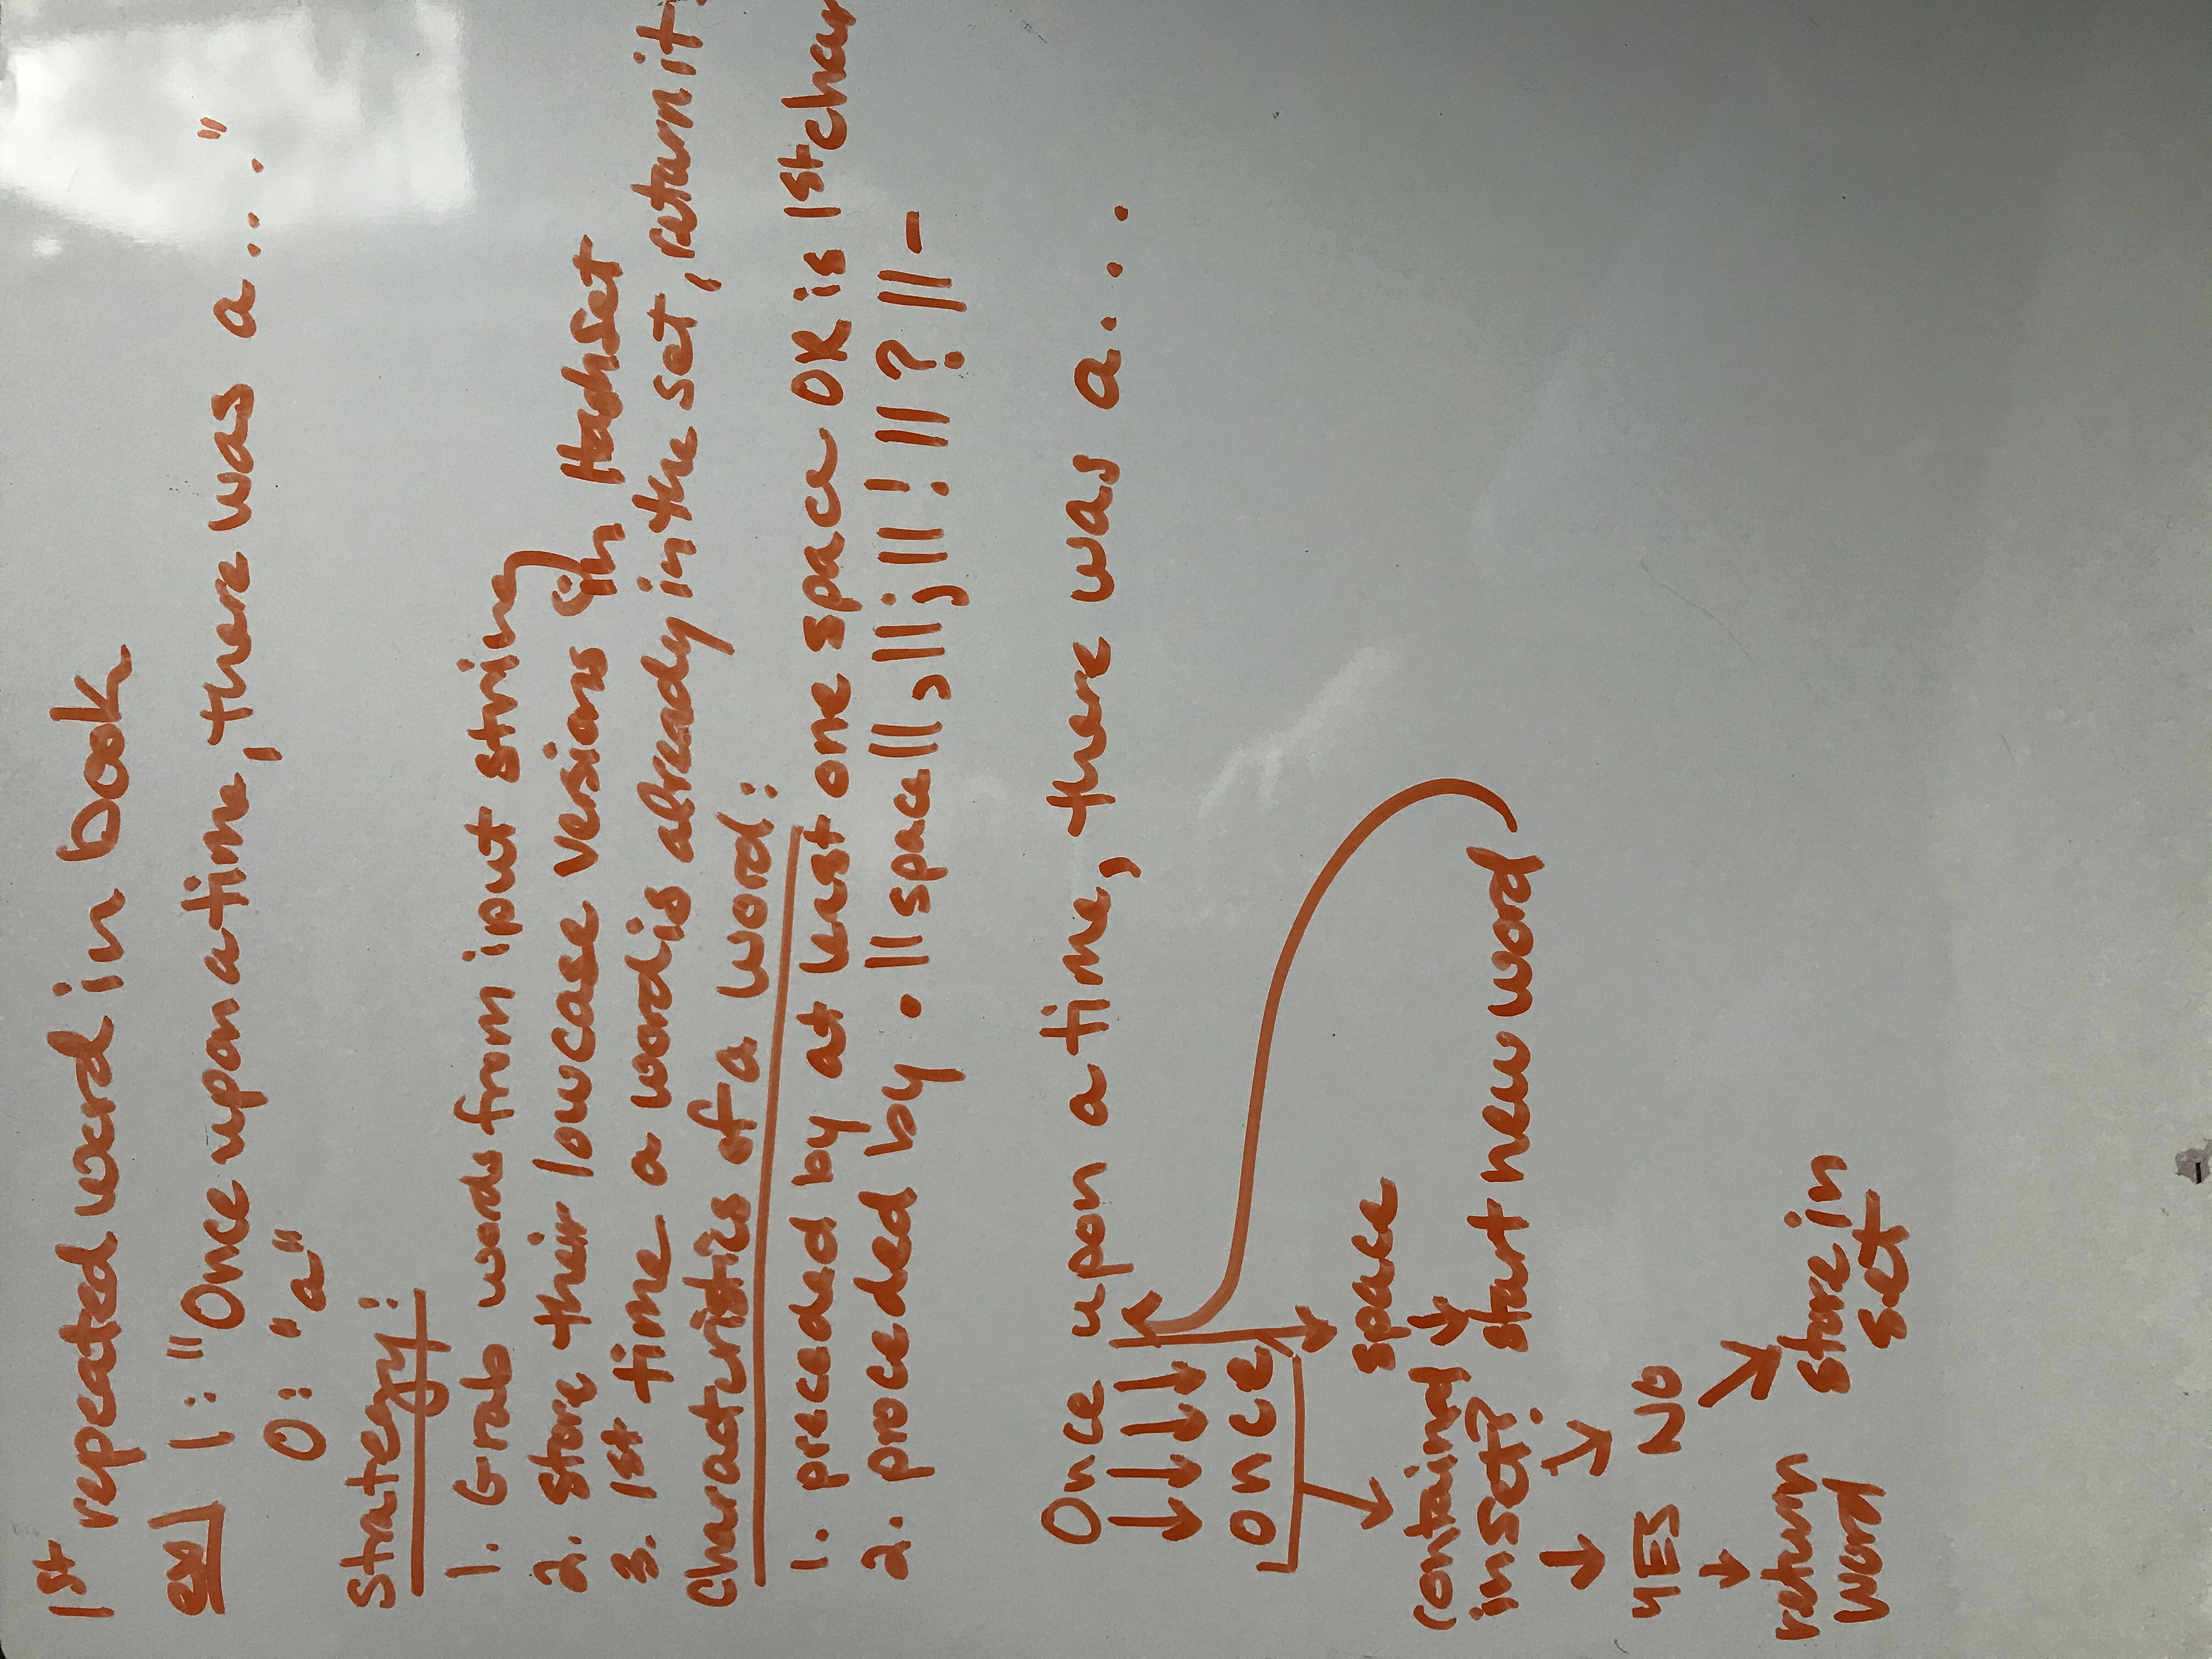 1st repeated word in book
ex] I: "Once upon a time, there was a..."
O: "a"
Strategy:
1. Grab words from iput string
2. store their lowcase versions in HashSet
3. 1st time a word is already in the set, return it
Characteristics of a word:
1. preceded by at least one space OR is 1st char
2. proceded by . || space || , || ; || ! || ? || -
Once upon a time, there was a...
once
space
contained
in set? start new word
YES NO
return
word
store in
set